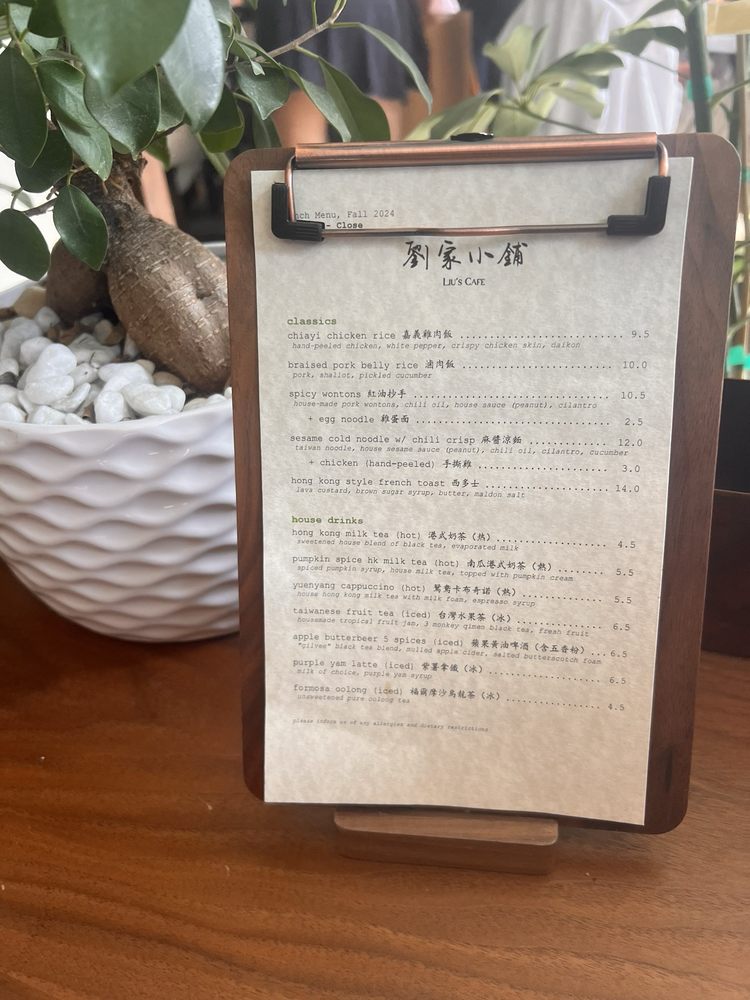 nch Menu, Fall 2024
- Close
劉家小舖
LIU'S CAFE
classics
chiayi chicken rice 嘉義雞肉飯 ........................ 9.5
hand-peeled chicken, white pepper, crispy chicken skin, daikon
braised pork belly rice 滷肉飯 ........................ 10.0
pork, shallot, pickled cucumber
spicy wontons 紅油抄手 ........................ 10.5
house-made pork wontons, chili oil, house sauce (peanut), cilantro
+ egg noodle 雞蛋面 ........................ 2.5
sesame cold noodle w/ chili crisp 麻醬涼麵 ............ 12.0
taiwan noodle, house sesame sauce (peanut), chili oil, cilantro, cucumber
+ chicken (hand-peeled) 手撕雞 ................ 3.0
hong kong style french toast 西多士 ................ 14.0
lava custard, brown sugar syrup, butter, maldon salt
house drinks
hong kong milk tea (hot) 港式奶茶 (熱) ................ 4.5
sweetened house blend of black tea, evaporated milk
pumpkin spice hk milk tea (hot) 南瓜港式奶茶 (熱) ........ 5.5
spiced pumpkin syrup, house milk tea, topped with pumpkin cream
yuenyang cappuccino (hot) 鴛鴦卡布奇諾 (熱) ............ 5.5
house hong kong milk tea with milk foam, espresso syrup
taiwanese fruit tea (iced) 台灣水果茶 (冰) ............ 6.5
housemade tropical fruit jam, 3 monkey qimen black tea, fresh fruit
apple butterbeer 5 spices (iced) 蘋果黃油啤酒 (含五香粉) ... 6.5
"gilvee" black tea blend, mulled apple cider, salted butterscotch foam
purple yam latte (iced) 紫薯拿鐵 (冰) ................ 6.5
milk of choice, purple yam syrup
formosa oolong (iced) 福爾摩沙烏龍茶 (冰) ............ 4.5
unsweetened pure oolong tea
please inform us of any allergies and dietary restrictions